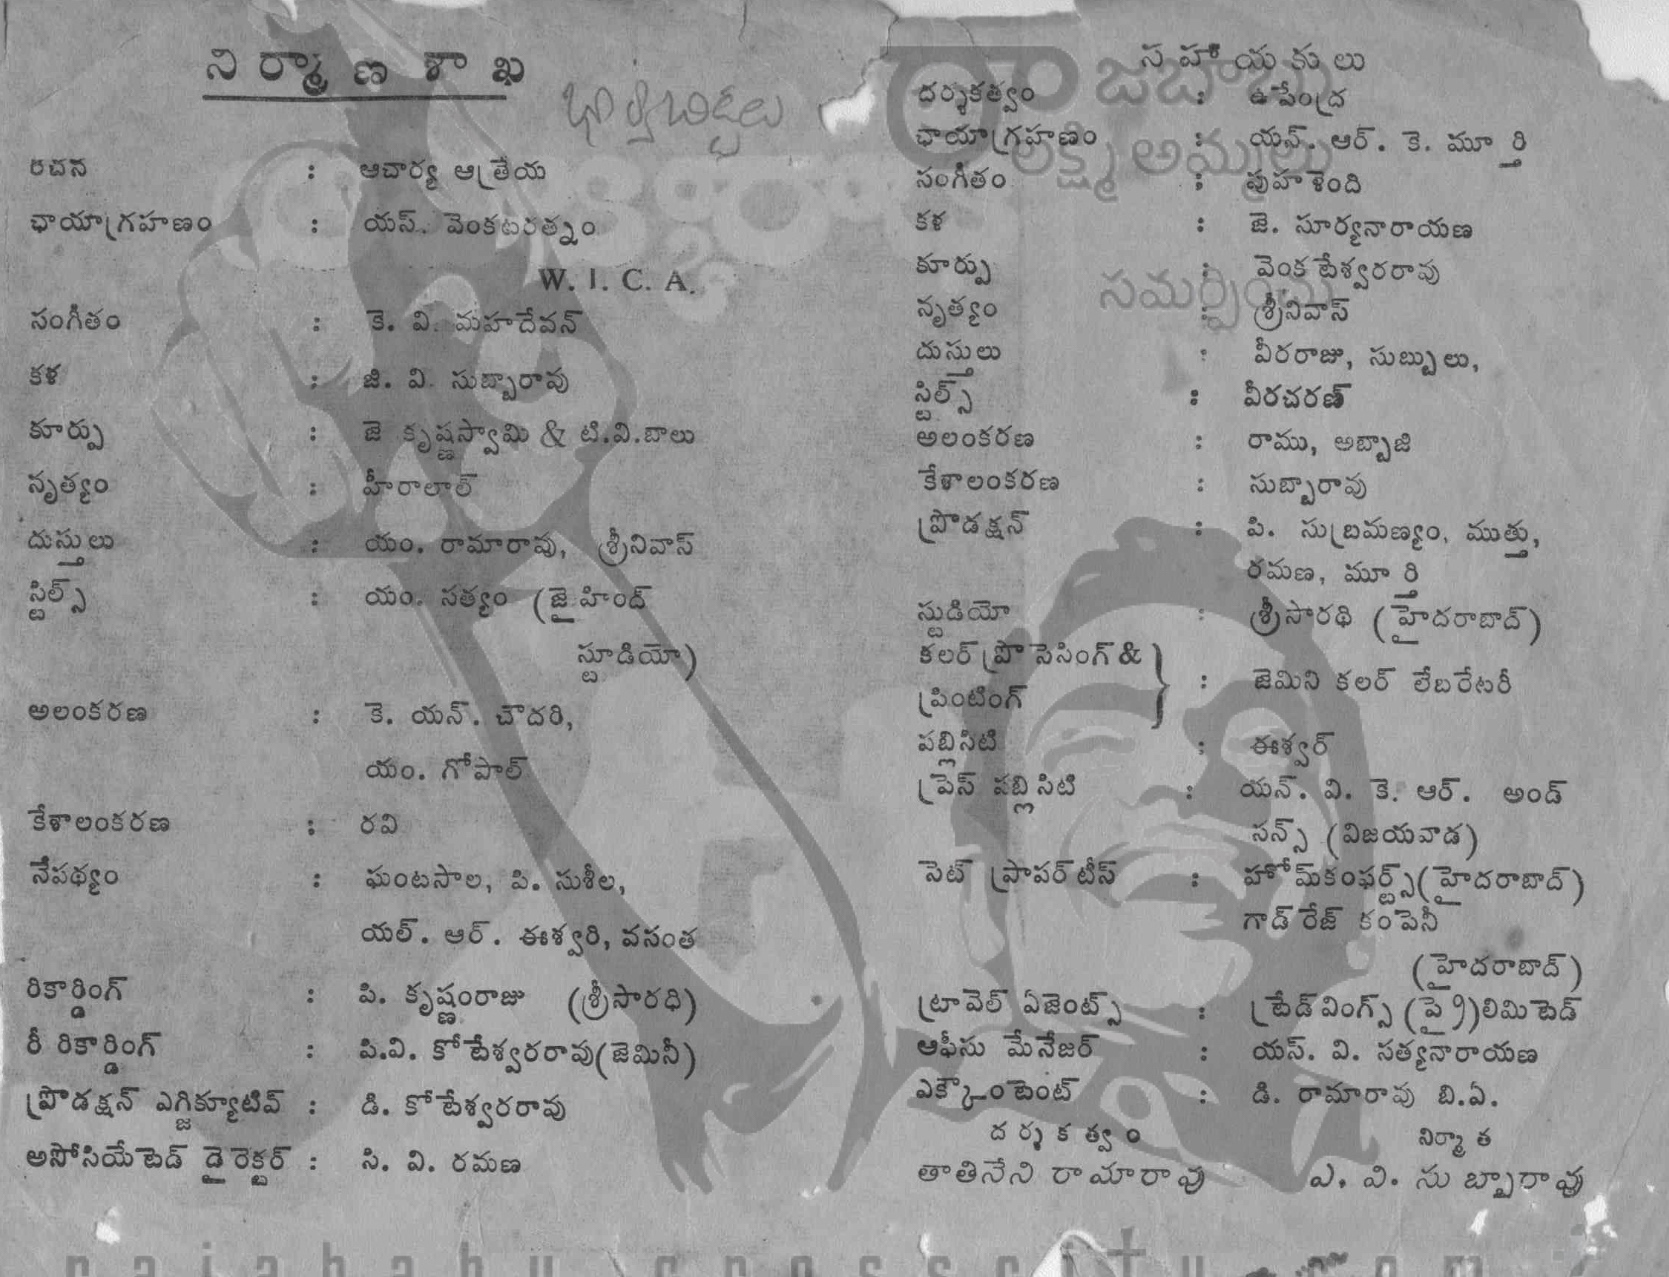 నిర్మాణ శాఖ
రచన : ఆచార్య ఆత్రేయ
ఛాయాగ్రహణం : యస్. వెంకటరత్నం
W. I. C. A.
సంగీతం : కె. వి. మహదేవన్
కళ : జి. వి. సుబ్బారావు
కూర్పు : జె కృష్ణస్వామి & టి.వి.బాలు
నృత్యం : హీరాలాల్
దుస్తులు : యం. రామారావు, శ్రీనివాస్
స్టిల్స్ : యం. సత్యం (జైహింద్
స్టూడియో)
అలంకరణ : కె. యన్. చౌదరి,
యం. గోపాల్
కేశాలంకరణ : రవి
నేపథ్యం : ఘంటసాల, పి. సుశీల,
యల్. ఆర్. ఈశ్వరి, వసంత
రికార్డింగ్ : పి. కృష్ణంరాజు (శ్రీసారధి)
రీ రికార్డింగ్ : పి.వి. కోటేశ్వరరావు(జెమినీ)
ప్రొడక్షన్ ఎగ్జిక్యూటివ్ : డి. కోటేశ్వరరావు
అసోసియేటెడ్ డైరెక్టర్ : సి. వి. రమణ
సహాయకులు
దర్శకత్వం : ఉపేంద్ర
ఛాయాగ్రహణం : యన్. ఆర్. కె. మూర్తి
సంగీతం : పుహళెంది
కళ : జె. సూర్యనారాయణ
కూర్పు : వెంకటేశ్వరరావు
నృత్యం : శ్రీనివాస్
దుస్తులు : వీరరాజు, సుబ్బులు,
స్టిల్స్ : వీరచరణ్
అలంకరణ : రాము, అబ్బాజి
కేశాలంకరణ : సుబ్బారావు
ప్రొడక్షన్ : పి. సుబ్రమణ్యం, ముత్తు,
రమణ, మూర్తి
స్టుడియో : శ్రీసారథి (హైదరాబాద్)
కలర్ ప్రొసెసింగ్ &
ప్రింటింగ్ } : జెమిని కలర్ లేబరేటరీ
పబ్లిసిటి : ఈశ్వర్
ప్రెస్ పబ్లిసిటి : యన్. వి. కె. ఆర్. అండ్
సన్స్ (విజయవాడ)
సెట్ ప్రాపర్టీస్ : హోమ్‌కంఫర్ట్స్(హైదరాబాద్)
గాడ్‌రేజ్ కంపెనీ
(హైదరాబాద్)
ట్రావెల్ ఏజెంట్స్ : ట్రేడ్‌వింగ్స్ (ప్రై)లిమిటెడ్
ఆఫీసు మేనేజర్ : యస్. వి. సత్యనారాయణ
ఎక్కౌంటెంట్ : డి. రామారావు బి.ఏ.
దర్శకత్వం నిర్మాత
తాతినేని రామారావు ఎ. వి. సుబ్బారావు
రాజబాబు
లక్ష్మి అమ్మలు
సమర్పించు